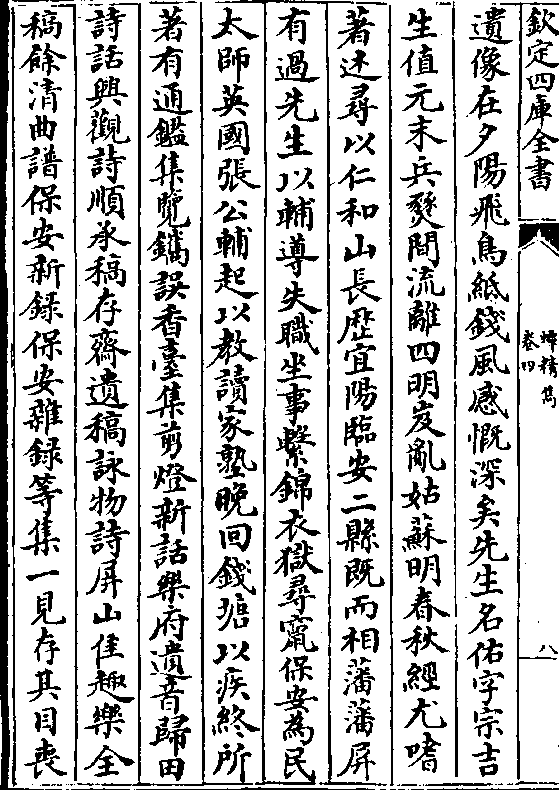 欽定四庫全書
蟫精雋
卷四
八
遺像在夕陽飛鳥紙錢風感慨深矣先生名佑字宗吉
生值元末兵燹間流離四明㡰亂姑蘇明春秋經尤嗜
著述尋以仁和山長歷宜陽臨安二縣既而相藩藩屏
有過先生以輔導失職坐事繫錦衣獄尋竄保安為民
太師英國張公輔起以教讀家塾晚回錢塘以疾終所
著有通鑑集覽鐫誤香臺集剪燈新話樂府遺音歸田
詩話興觀詩順承稿存齋遺稿詠物詩屏山佳趣樂全
稿餘清曲譜保安新錄保安雜錄等集一見存其目喪